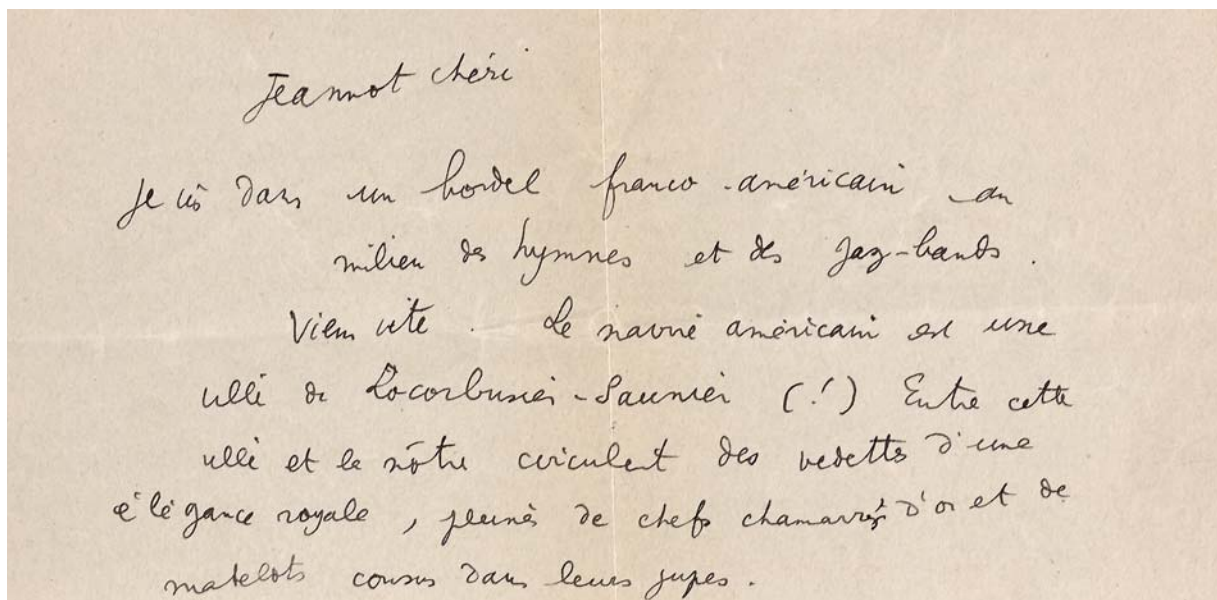 Jeannot chéri
Je vis dans un bordel franco-américain au
milieu des hymnes et des jaz-bands.
Viens vite. Le navire américain est une
ville de Locorbusier-Saunier (!) Entre cette
ville et la nôtre circulent des vedettes d'une
élégance royale, pleines de chefs chamarrés d'or et de
matelots cousus dans leurs jupes.